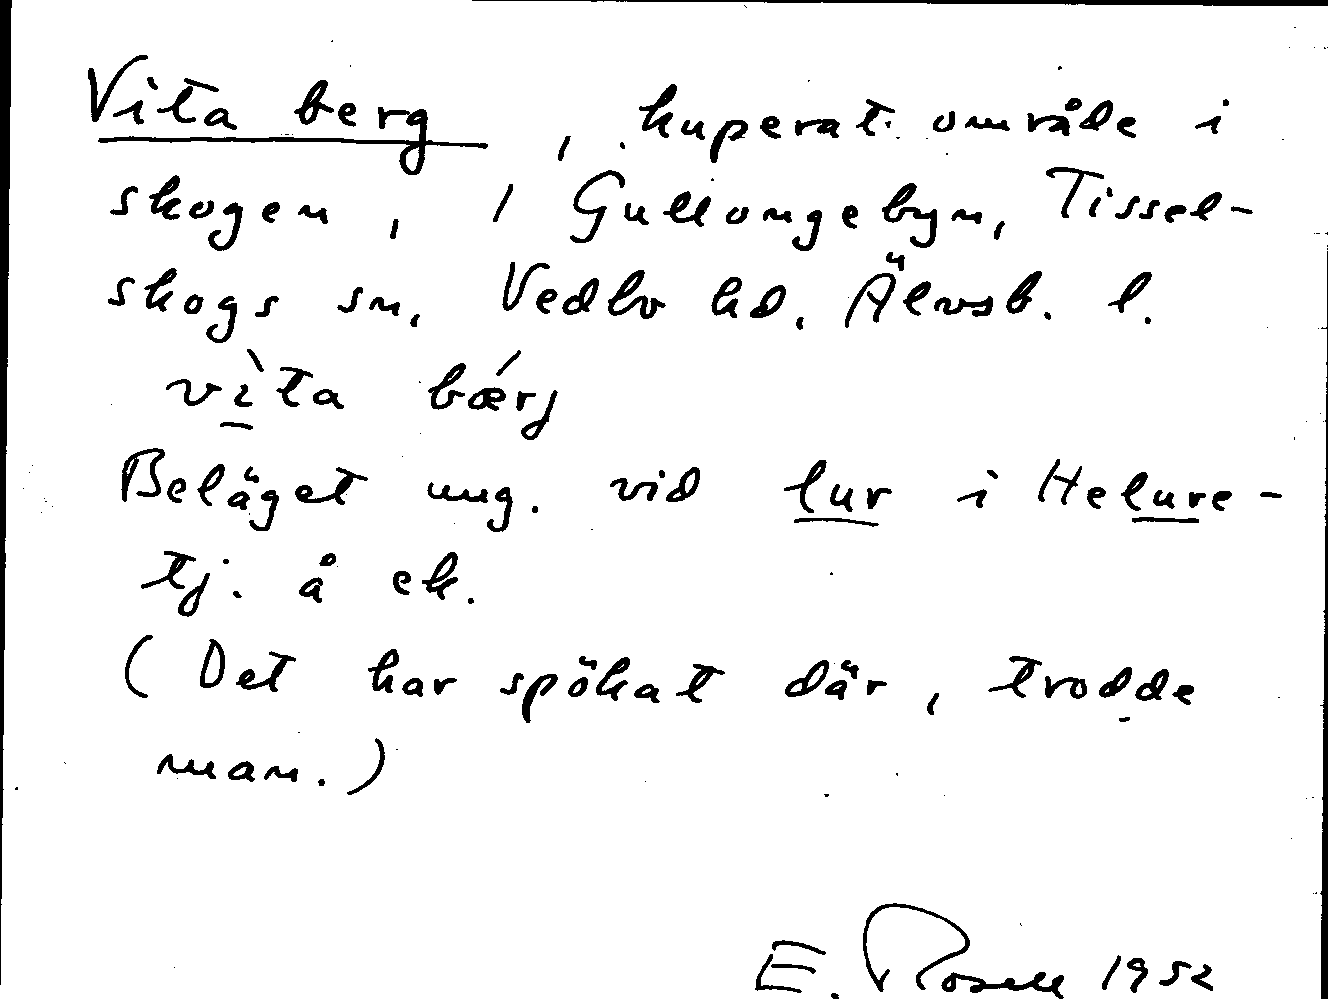 Vita berg, kuperat område i
skogen, 1 Gullongebyn, Tissel-
skogs sn, Vedbo hd. Älvsb. l.
vìta bǽrj
Beläget ung. vid lur i Helure-
tj. å ek.
(Det har spökat där, trodde
man.)
E. Rosell 1952